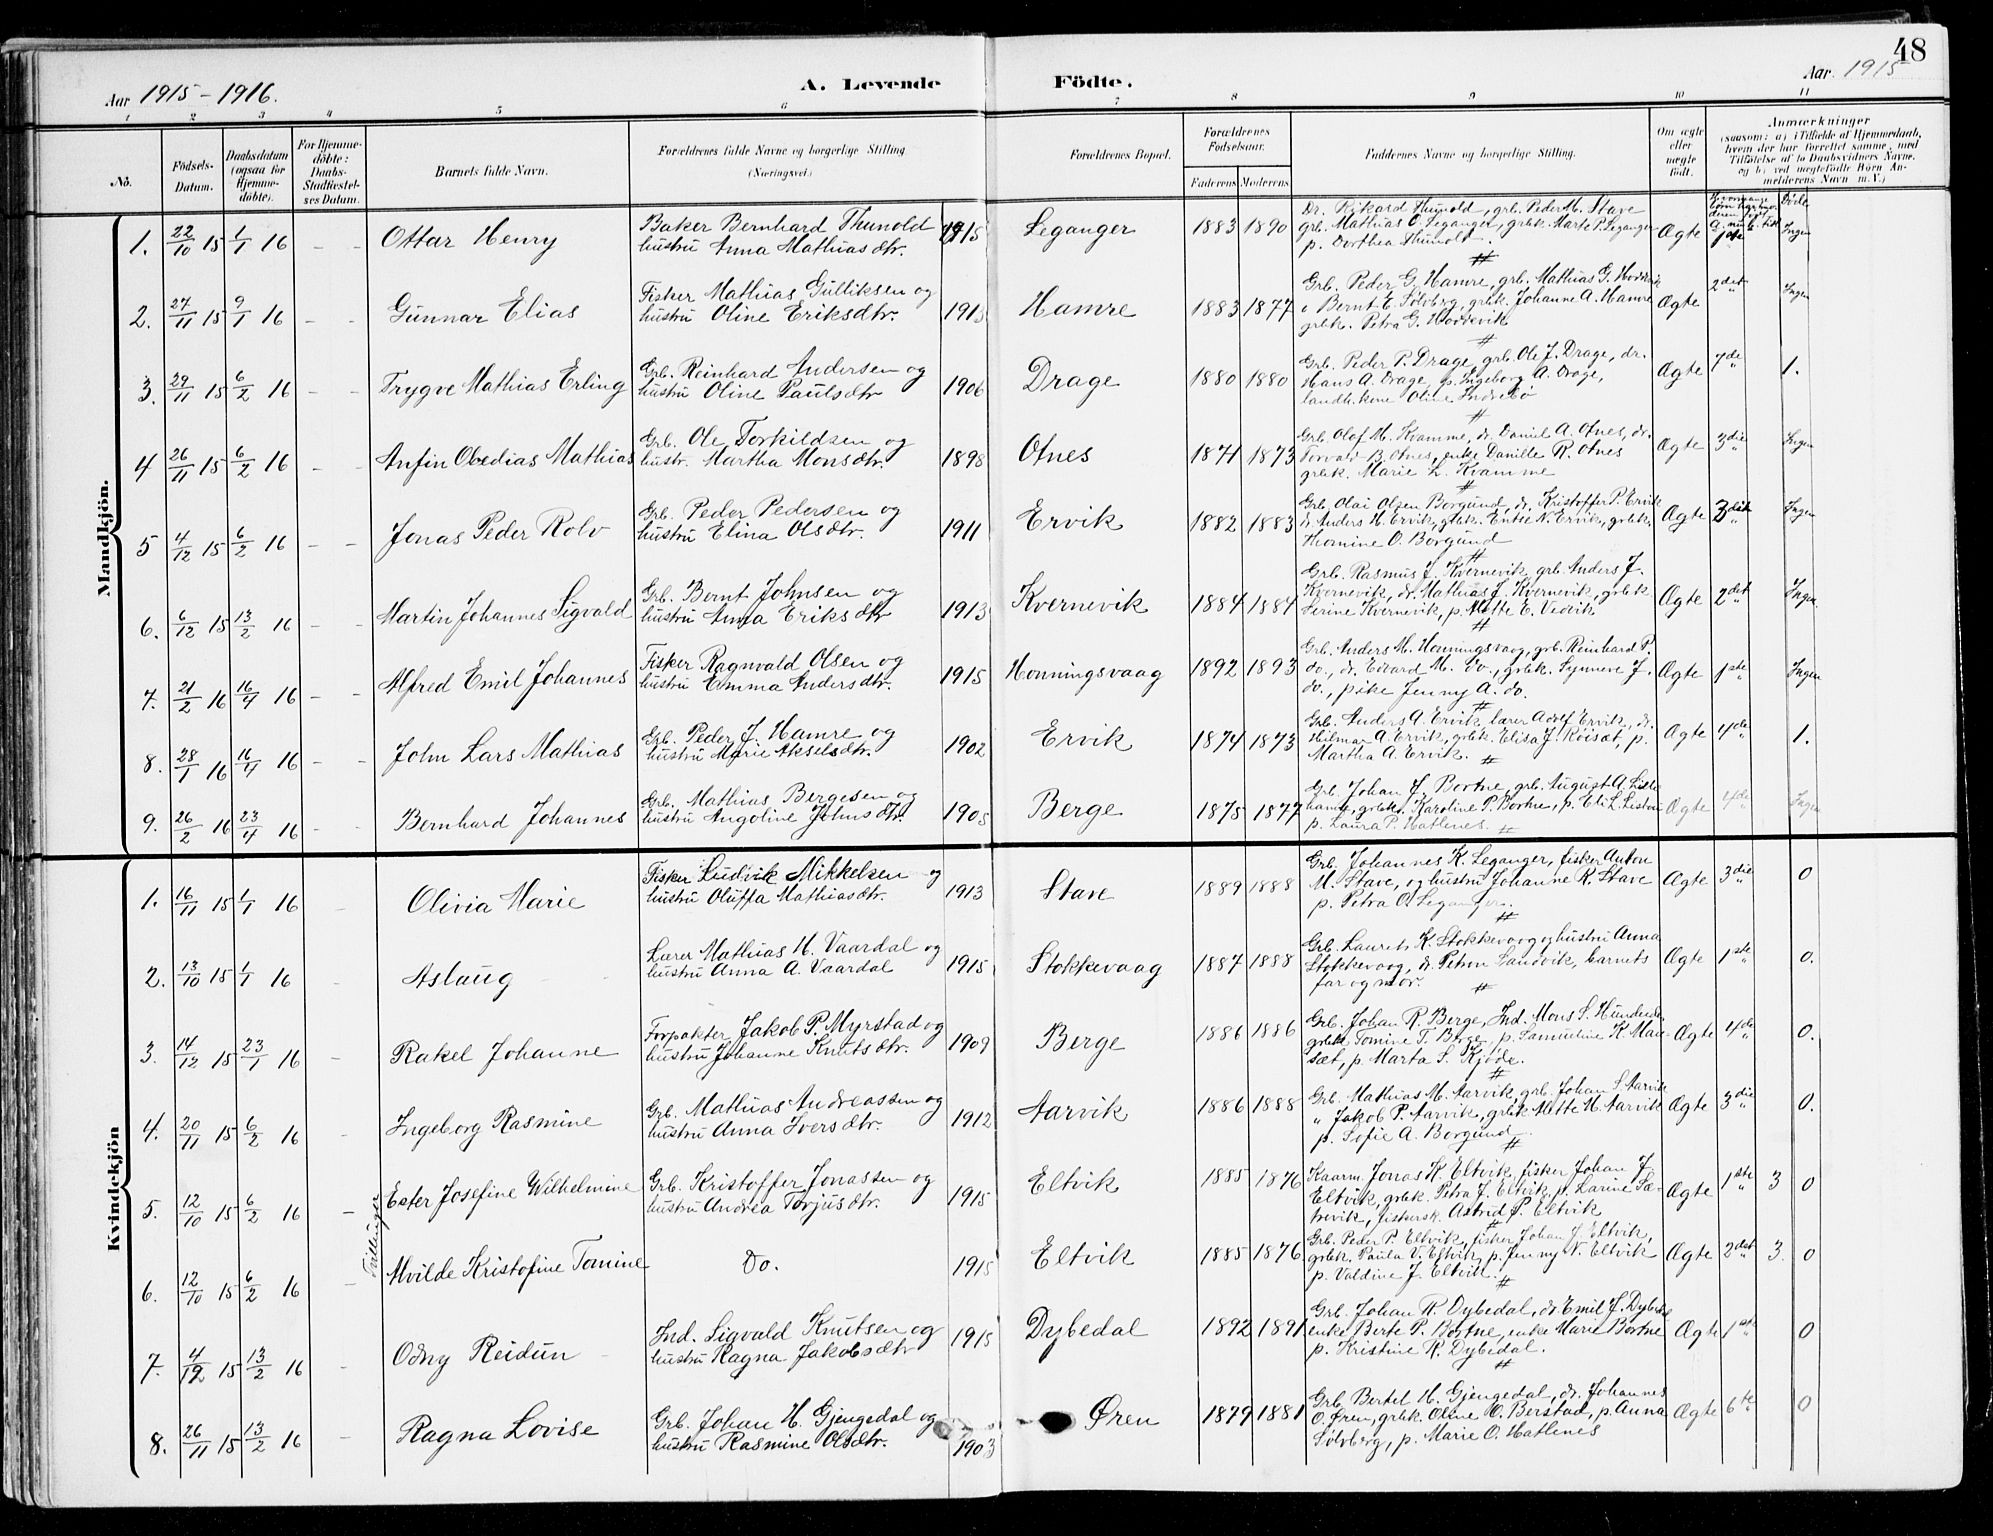 48
Aar 1915 - 1916.
A. Levende Födte.
Aar. 1915
1 2 3 4 5 6 7 8 9 10 11
No.
Födsels-Datum.
Daabsdatum (ogsaa for Hjemme-döbte).
For Hjemme-döbte: Daabs-Stadfæstel-ses Datum.
Barnets fulde Navn.
Forældrenes fulde Navne og borgerlige Stilling
(Næringsvei.)
Forældrenes Bopæl.
Forældrenes Födselsaar.
Faderens Moderens
Faddernes Navne og borgerlige Stilling.
Om ægte eller uægte födt.
Anmærkninger
(saasom: a) i Tilfælde af Hjemmedaab,
hvem der har forrettet samme, med
Tilföielse af to Daabsvidners Navne,
og b) ved uægtefödte Börn An-
melderens Navn m. V.)
Mandkjön.
1. 22/10 15 1/1 16 - - Ottar Henry
Baker Bernhard Thunold
hustru Anna Mathiasdtr. 1915
Leganger 1883 1890
Dr. Rikard Thunold, grb. Peder M. Stave
grb. Mathias O. Leganger, grbk. Marte P. Leganger
p. Dorthea Thunold.
Ægte 1ste Døde Ingen
2. 27/11 15 9/1 16 - - Gunnar Elias
Fisker Mathias Gulliksen og
hustru Oline Eriksdtr. 1913
Hamre 1883 1877
Grb. Peder G. Hamre, grb. Mathias G. Hoddevik
" Bernt E. Sölvberg, grbk. Johanne A. Hamre
grbk. Petra G. Hoddevik
Ægte 2det Ingen
3. 29/11 15 6/2 16 - - Trygve Mathias Erling
Grb. Reinhard Andersen og
hustru Oline Paulsdtr 1906
Drage 1880 1880
Grb. Peder P. Drage, grb. Ole J. Drage, dr.
Hans A. Drage, p. Ingeborg A. Drage,
landh. kone Oline Indrebø
Ægte 7de 1.
4 26/11 15 6/2 16 - - Anfin Obedias Mathias
Grb. Ole Torkildsen og
hustr. Martha Monsdtr. 1898
Otnes 1871 1873
Grb. Olaf M. Kvamme, dr. Daniel A. Otnes, dr.
Torvald B. Otnes, enke Danille R. Otnes
grbk. Marie L. Kvamme
Ægte 3die Ingen
5 4/12 15 6/2 16 - - Jonas Peder Rolv
Grb. Peder Pedersen og
hustru Elina Olsdtr. 1911
Ervik 1882 1883
Grb. Olai Olsen Borgund, dr. Kristoffer P. Ervik
dr. Anders H. Ervik, grbk. Entse N. Ervik, grbk.
Thomine O. Borgund
Ægte Ingen
6. 6/12 15 13/2 16 - - Martin Johannes Sigvald
Grb. Bernt Johnsen og
hustru Anna Eriksdtr 1913
Kvernevik 1884 1884
Grb. Rasmus J. Kvernevik, grb. Anders J.
Kvernevik, dr. Mathias J. Kvernevik, grbk.
Serine Kvernevik, p. Mette E. Vedvik
Ægte 2det Ingen
7. 21/2 16 16/4 16 - - Alfred Emil Johannes
Fisker Ragnvald Olsen og
hustru Emma Andersdtr. 1915
Honningsvaag 1892 1893
Grb. Anders M. Honningsvaag, grb. Reinhard P.
do., dr. Edvard M. do., grbk. Synneve J.
do., pike Jenny A. do.
Ægte 1ste Ingen
8. 28/1 16 16/4 16 - - John Lars Mathias
Grb. Peder J. Hamre og
hustru Marie Akselsdtr. 1902
Ervik 1874 1873
Grb. Anders A. Ervik, lærer Adolf Ervik, dr.
Hilmar A. Ervik, grbk. Elisa J. Röisæt, p.
Martha A. Ervik.
Ægte 4de 1.
9. 26/2 16 23/4 16 - - Bernhard Johannes
Grb. Mathias Bergesen og
hustru Angoline Johnsdtr. 1905
Berge 1875 1877
Grb. Johan J. Bortne, grb. August A. Liste
hamle, grbk. Karoline P. Bortne, p. Eli L.
p. Laura P. Hatlenes.
Ægte 4de Ingen
Kvindekjön
1. 16/11 15 1/1 16 - Olivia Marie
Fisker Ludvik Mikkelsen og
hustru Oluffa Mathiasdtr. 1913
Stave 1889 1888
Grb. Johannes K. Leganger, fisker Anton
M. Stave, og hustru Johanne R. Stave
p. Petra O. Leganger.
Ægte 3die 0
2. 13/10 15 1/1 16 - Aslaug
Lærer Mathias H. Vaardal og
hustru Anna A. Vaardal 1915
Stokkevaag 1887 1888
Grb. Laurets K. Stokkevaag og hustru Anna
Stokkevaag, dr. Petron Sandvik, barnets
far og mor.
Ægte 1ste 0.
3. 14/12 15 23/1 16 Rakel Johanne
Forpakter Jakob P. Myrstad og
hustru Johanne Knutsdtr. 1909
Berge 1886 1886
Grb. Johan R. Berge, Ind. Mons S. Hundeide
grbk. Tomine T. Berge, p. Samueline K. Mau-
sæt, p. Marta S. Kjöde.
Ægte 4de 0.
4. 20/11 15 6/2 16 Ingeborg Rasmine
Grb. Mathias Andreassen og
hustru Anna Iversdtr. 1912
Aarvik 1886 1888
Grb. Mathias M. Aarvik, grb. Johan S. Aarvik
" Jakob P. Aarvik, grbk. Mette H. Aarvik
p. Sofie A. Borgund
Ægte 3die 0.
5. 12/10 15 6/2 16 - Ester Josefine Wilhelmine
Grb. Kristoffer Jonassen og
hustru Andrea Torjusdtr. 1915
Eltvik 1885 1876
Kaarm. Jonas K. Eltvik, fisker Johan J.
Eltvik, grbk. Petra J. Eltvik, p. Larine Sæ-
trevik, fiskersk. Astrid P. Eltvik
Ægte 1ste 3 0
Tvillinger
6. 12/10 15 6/2 16 - Alvilde Kristofine Tomine
Do. 1915
Eltvik 1885 1876
Grb. Peder P. Eltvik, fisker Johan J. Eltvik,
grbk. Paula V. Eltvik, p. Jenny N. Eltvik
p. Valdine J. Eltvik.
Ægte 2det 3. 0
7. 4/12 15 13/2 16 - Odny Reidun
Ind. Sigvald Knutsen og
hustru Ragna Jakobsdtr 1915
Dybedal 1892 1891
Grb. Johan R. Dybedal, dr. Emil J. Dybedal
enke Berte P. Bortne, enke Marie Bortne
p. Kristine R. Dybedal.
Ægte 1ste 0
8. 26/11 15 13/2 16 - Ragna Lovise
Grb. Johan H. Gjengedal og
hustru Rasmine Olsdtr. 1903
Øren 1879 1881
Grb. Bertel H. Gjengedal, dr. Johannes
O. Øren, grbk. Oline O. Berstad, p. Anna
Sölvberg, p. Marie O. Hatlenes
Ægte 6te 0